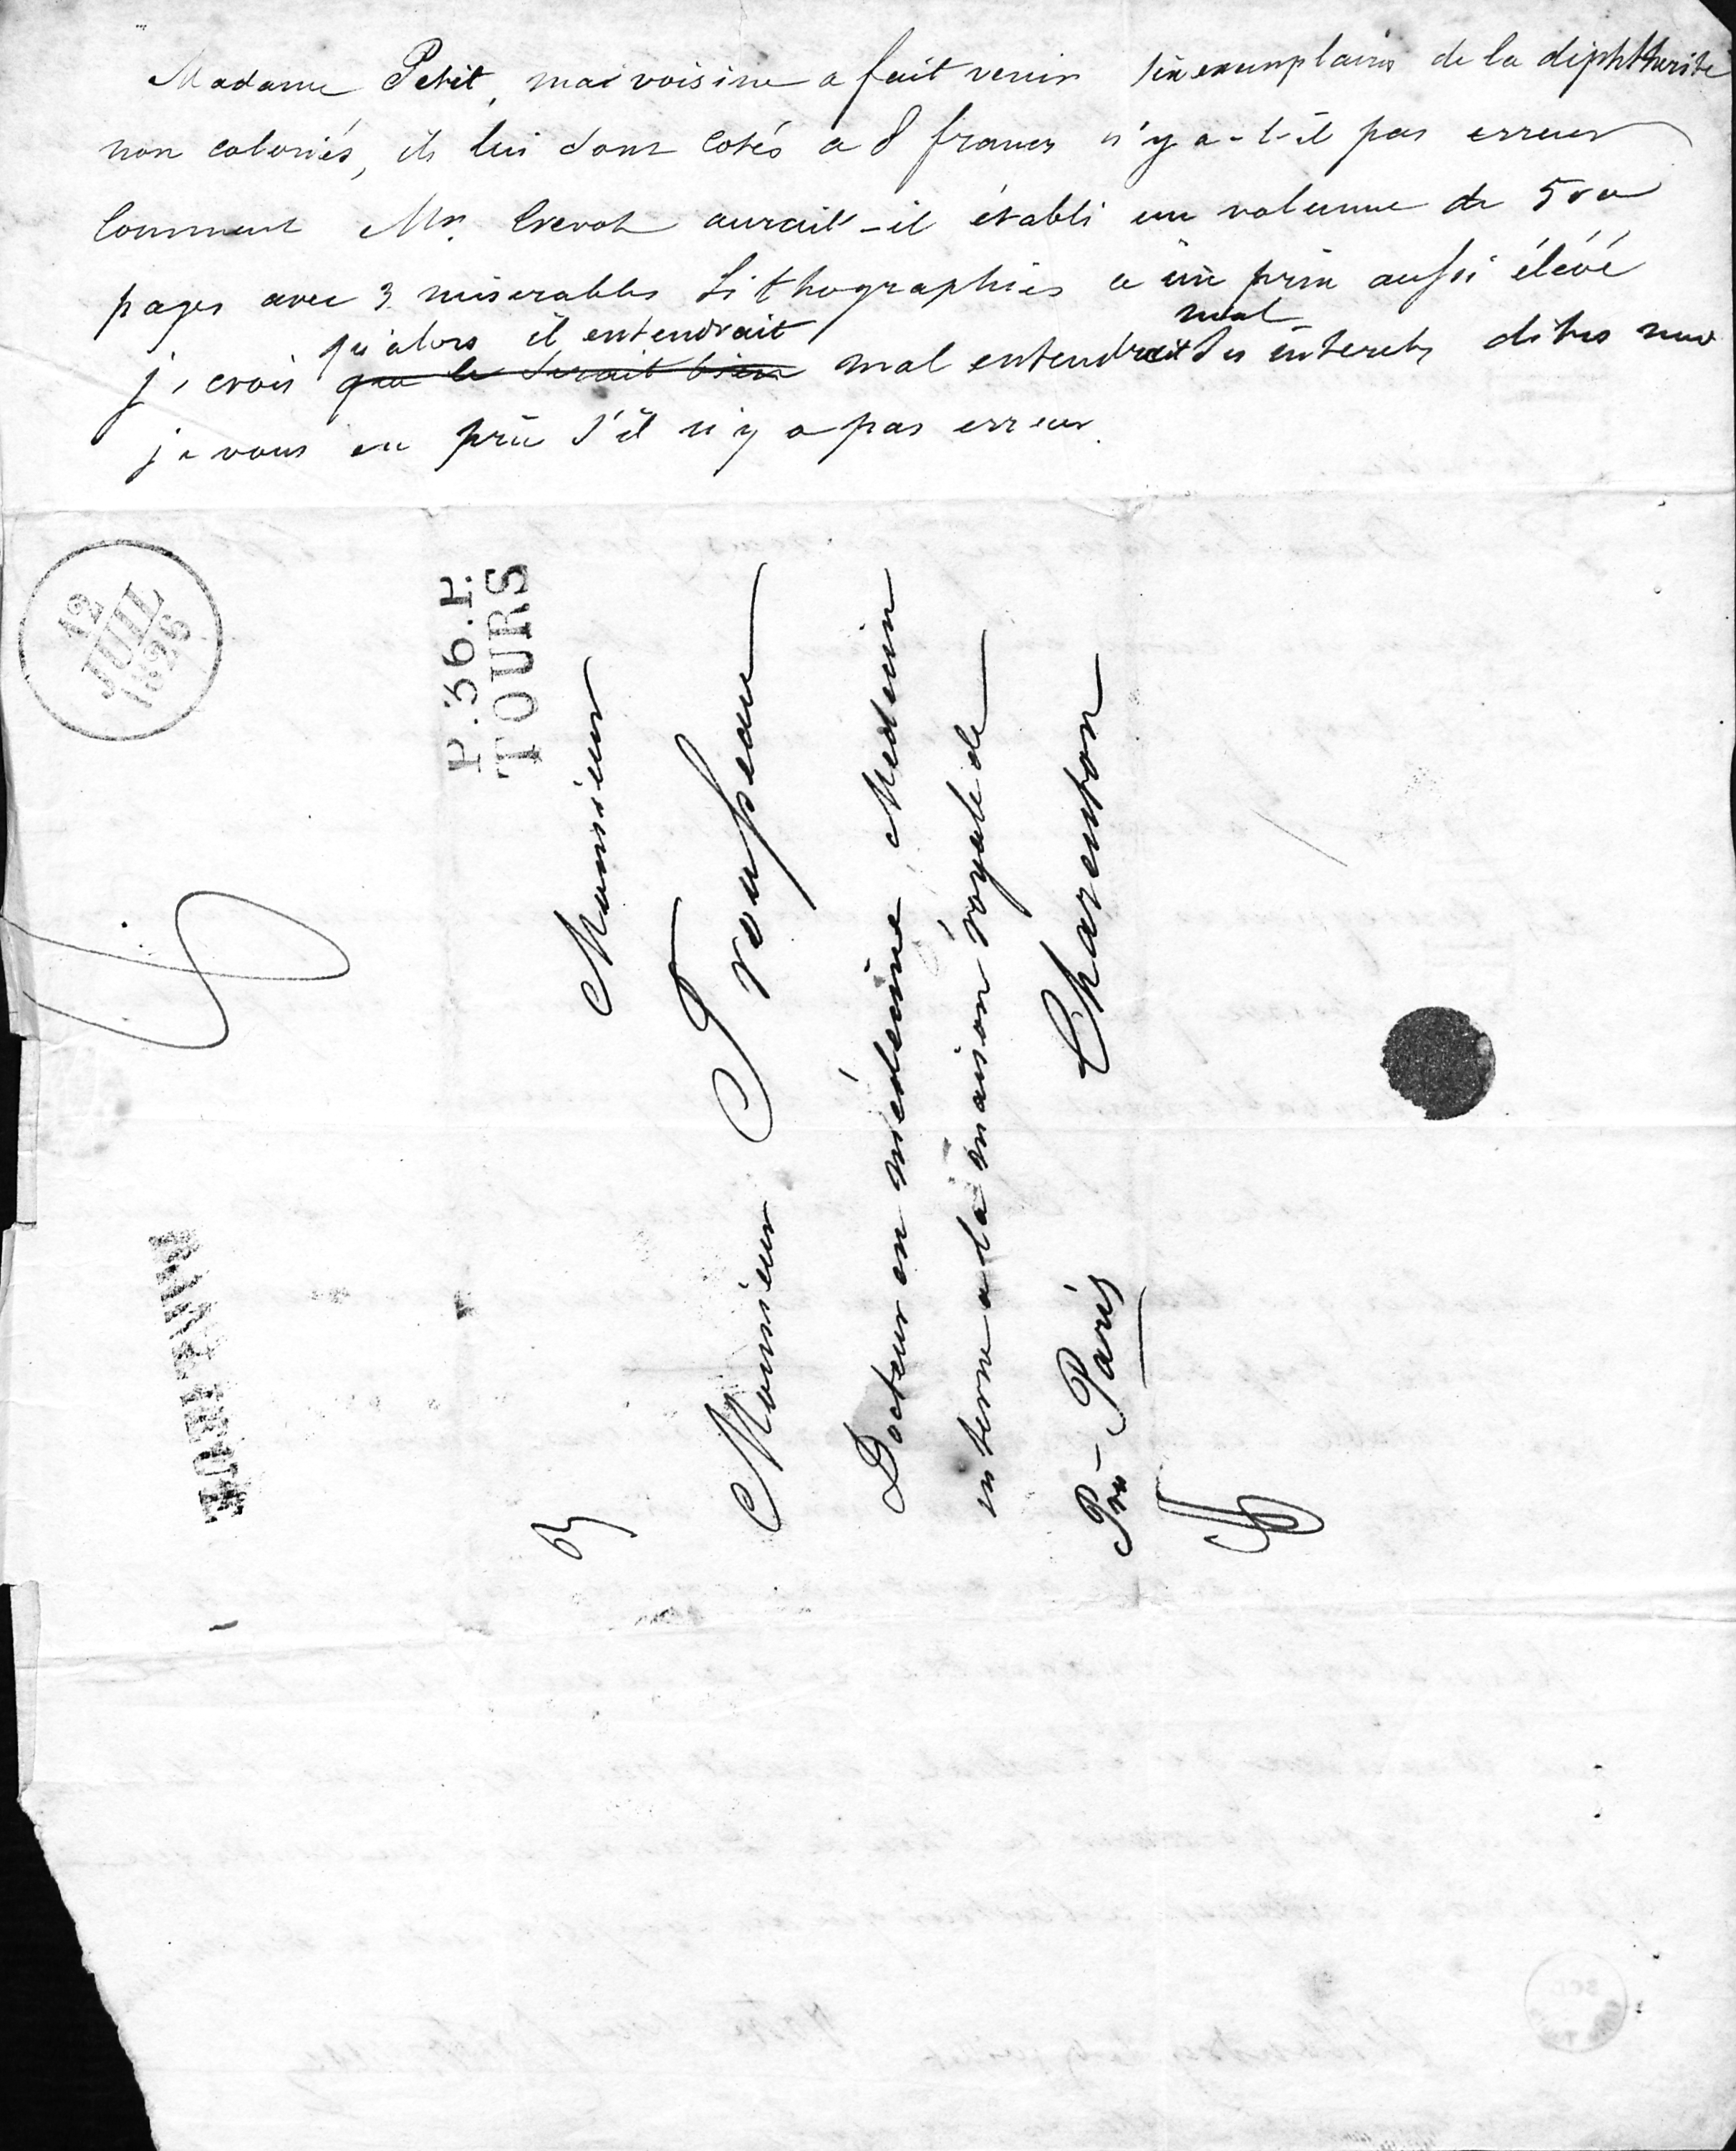 Madame Petit, ma voisine a fait venir six exemplaires de la diphthérite
non coloriés, ils lui sont cotés a 8 francs n'y a-t-il pas erreur
Comment Mr. Crevot aurait-il établi un volume de 500
pages avec 3 miserables Lithographies a un prix aussi élévé
qu'alors il entendrait mal
je crois que ce serait bien mal entendrait ses interets dites moi
je vous en prie s'il n'y a pas erreur.
12
JUIL
1826
P.36.P.
TOURS
Monsieur
Monsieur Trousseau
Docteur en médecine, Medecin
interne a la maison royale de
Charenton
Prés Paris